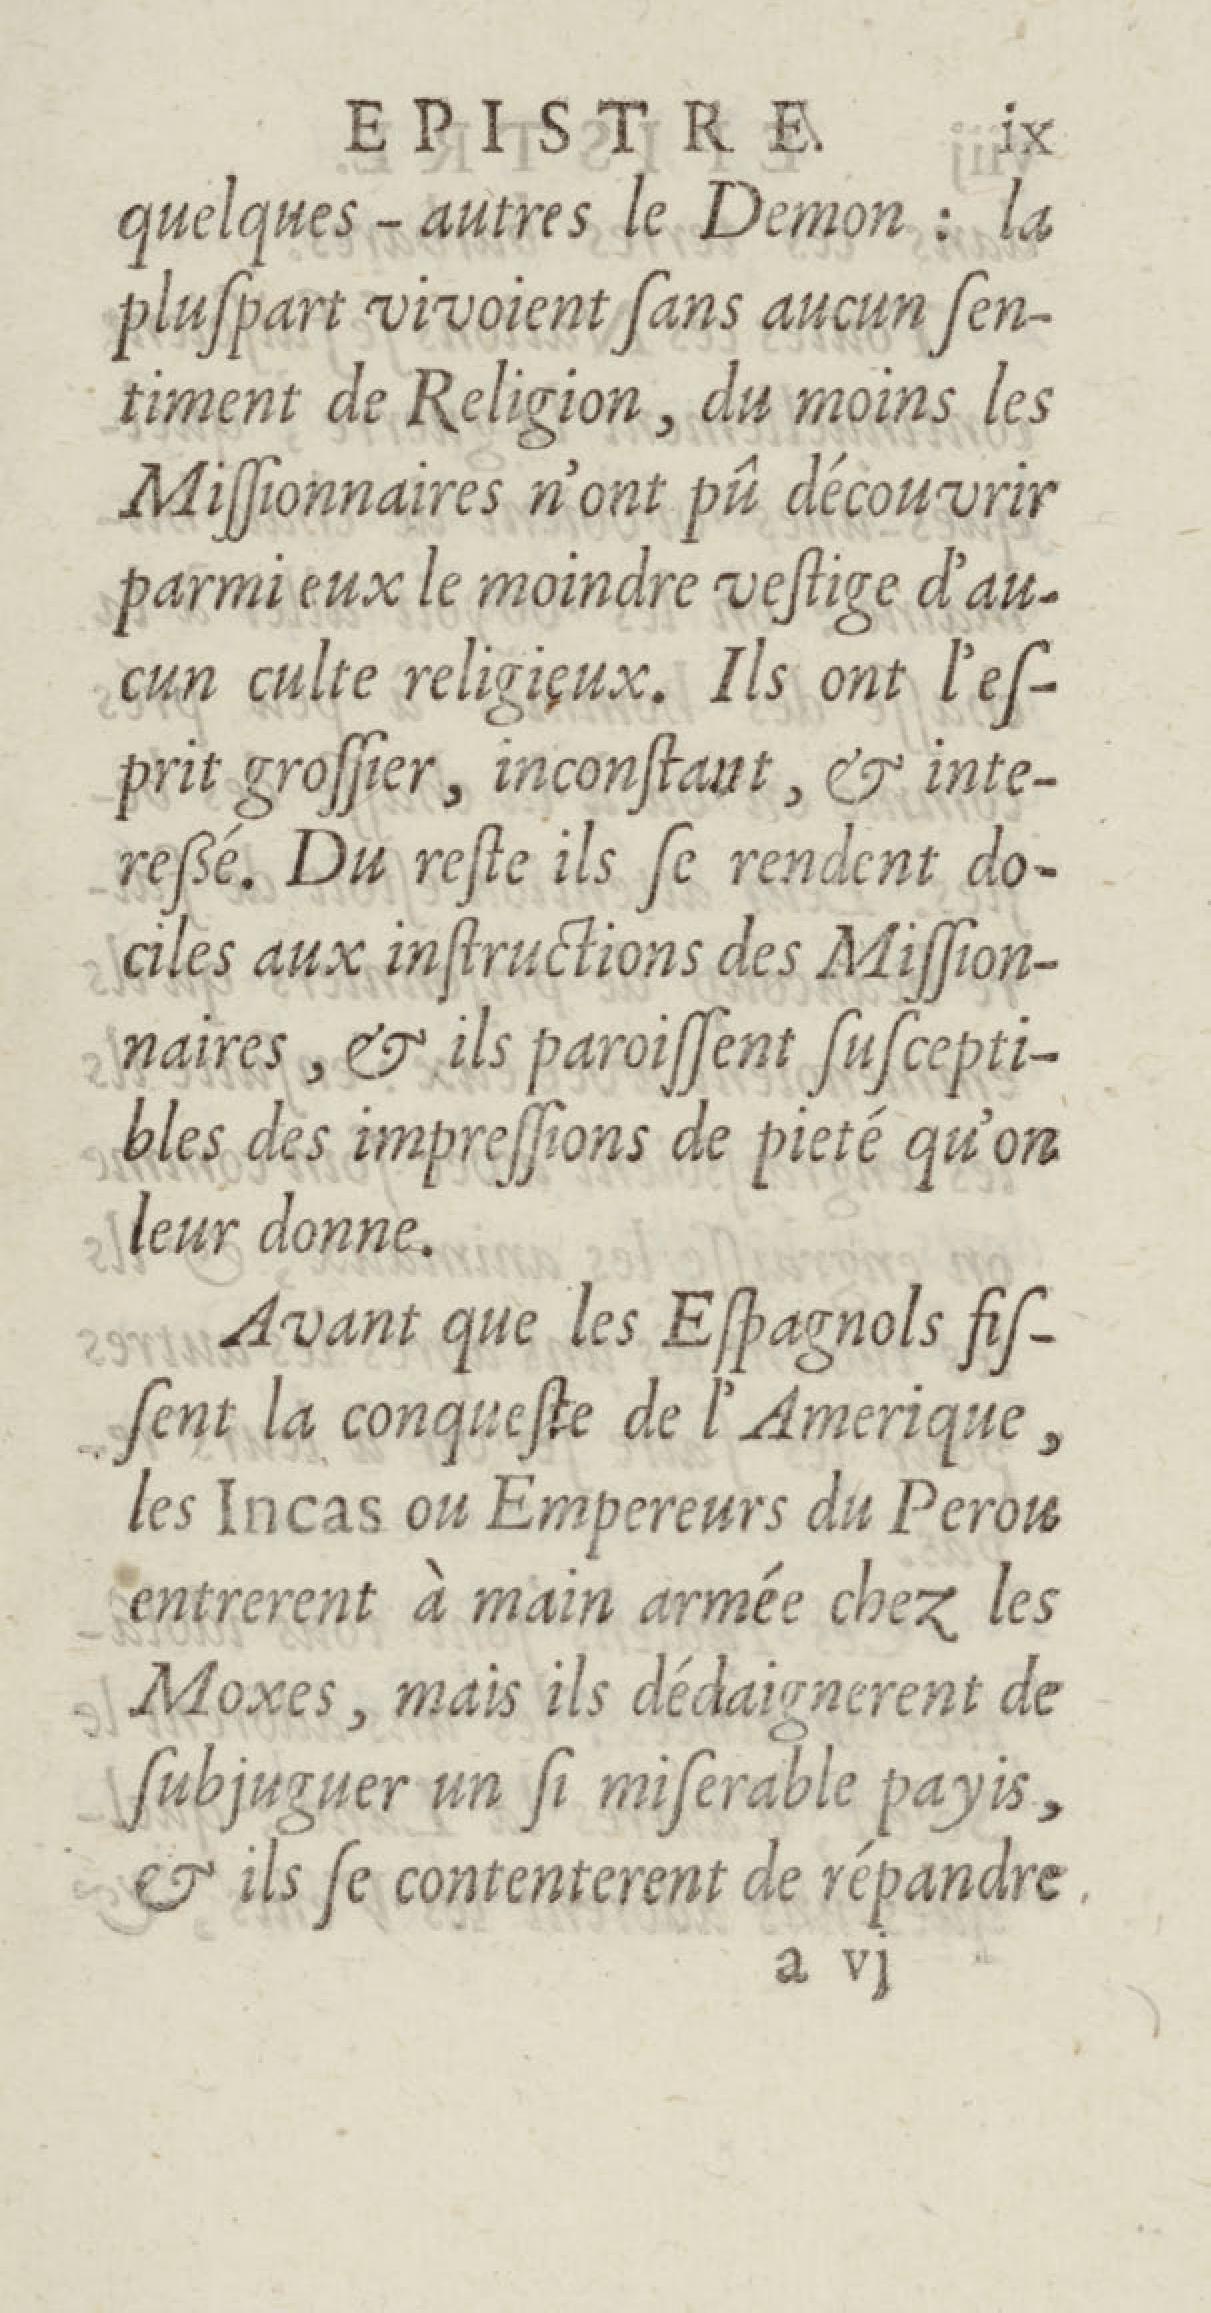 EPISTRE. ix
quelques-autres le Demon : la
pluſpart vivoient ſans aucun ſen-
timent de Religion, du moins les
Miſſionnaires n'ont pû découvrir
parmi eux le moindre veſtige d'au-
cun culte religieux. Ils ont l'eſ-
prit groſſier, inconſtant, & inte-
reſſé. Du reſte ils ſe rendent do-
ciles aux inſtructions des Miſſion-
naires, & ils paroiſſent ſuſcepti-
bles des impreſſions de pieté qu'on
leur donne.
Avant que les Eſpagnols fiſ-
ſent la conqueſte de l'Amerique,
les Incas ou Empereurs du Perou
entrerent à main armée chez les
Moxes, mais ils dédaignerent de
ſubjuguer un ſi miſerable payis,
& ils ſe contenterent de répandre
a vj